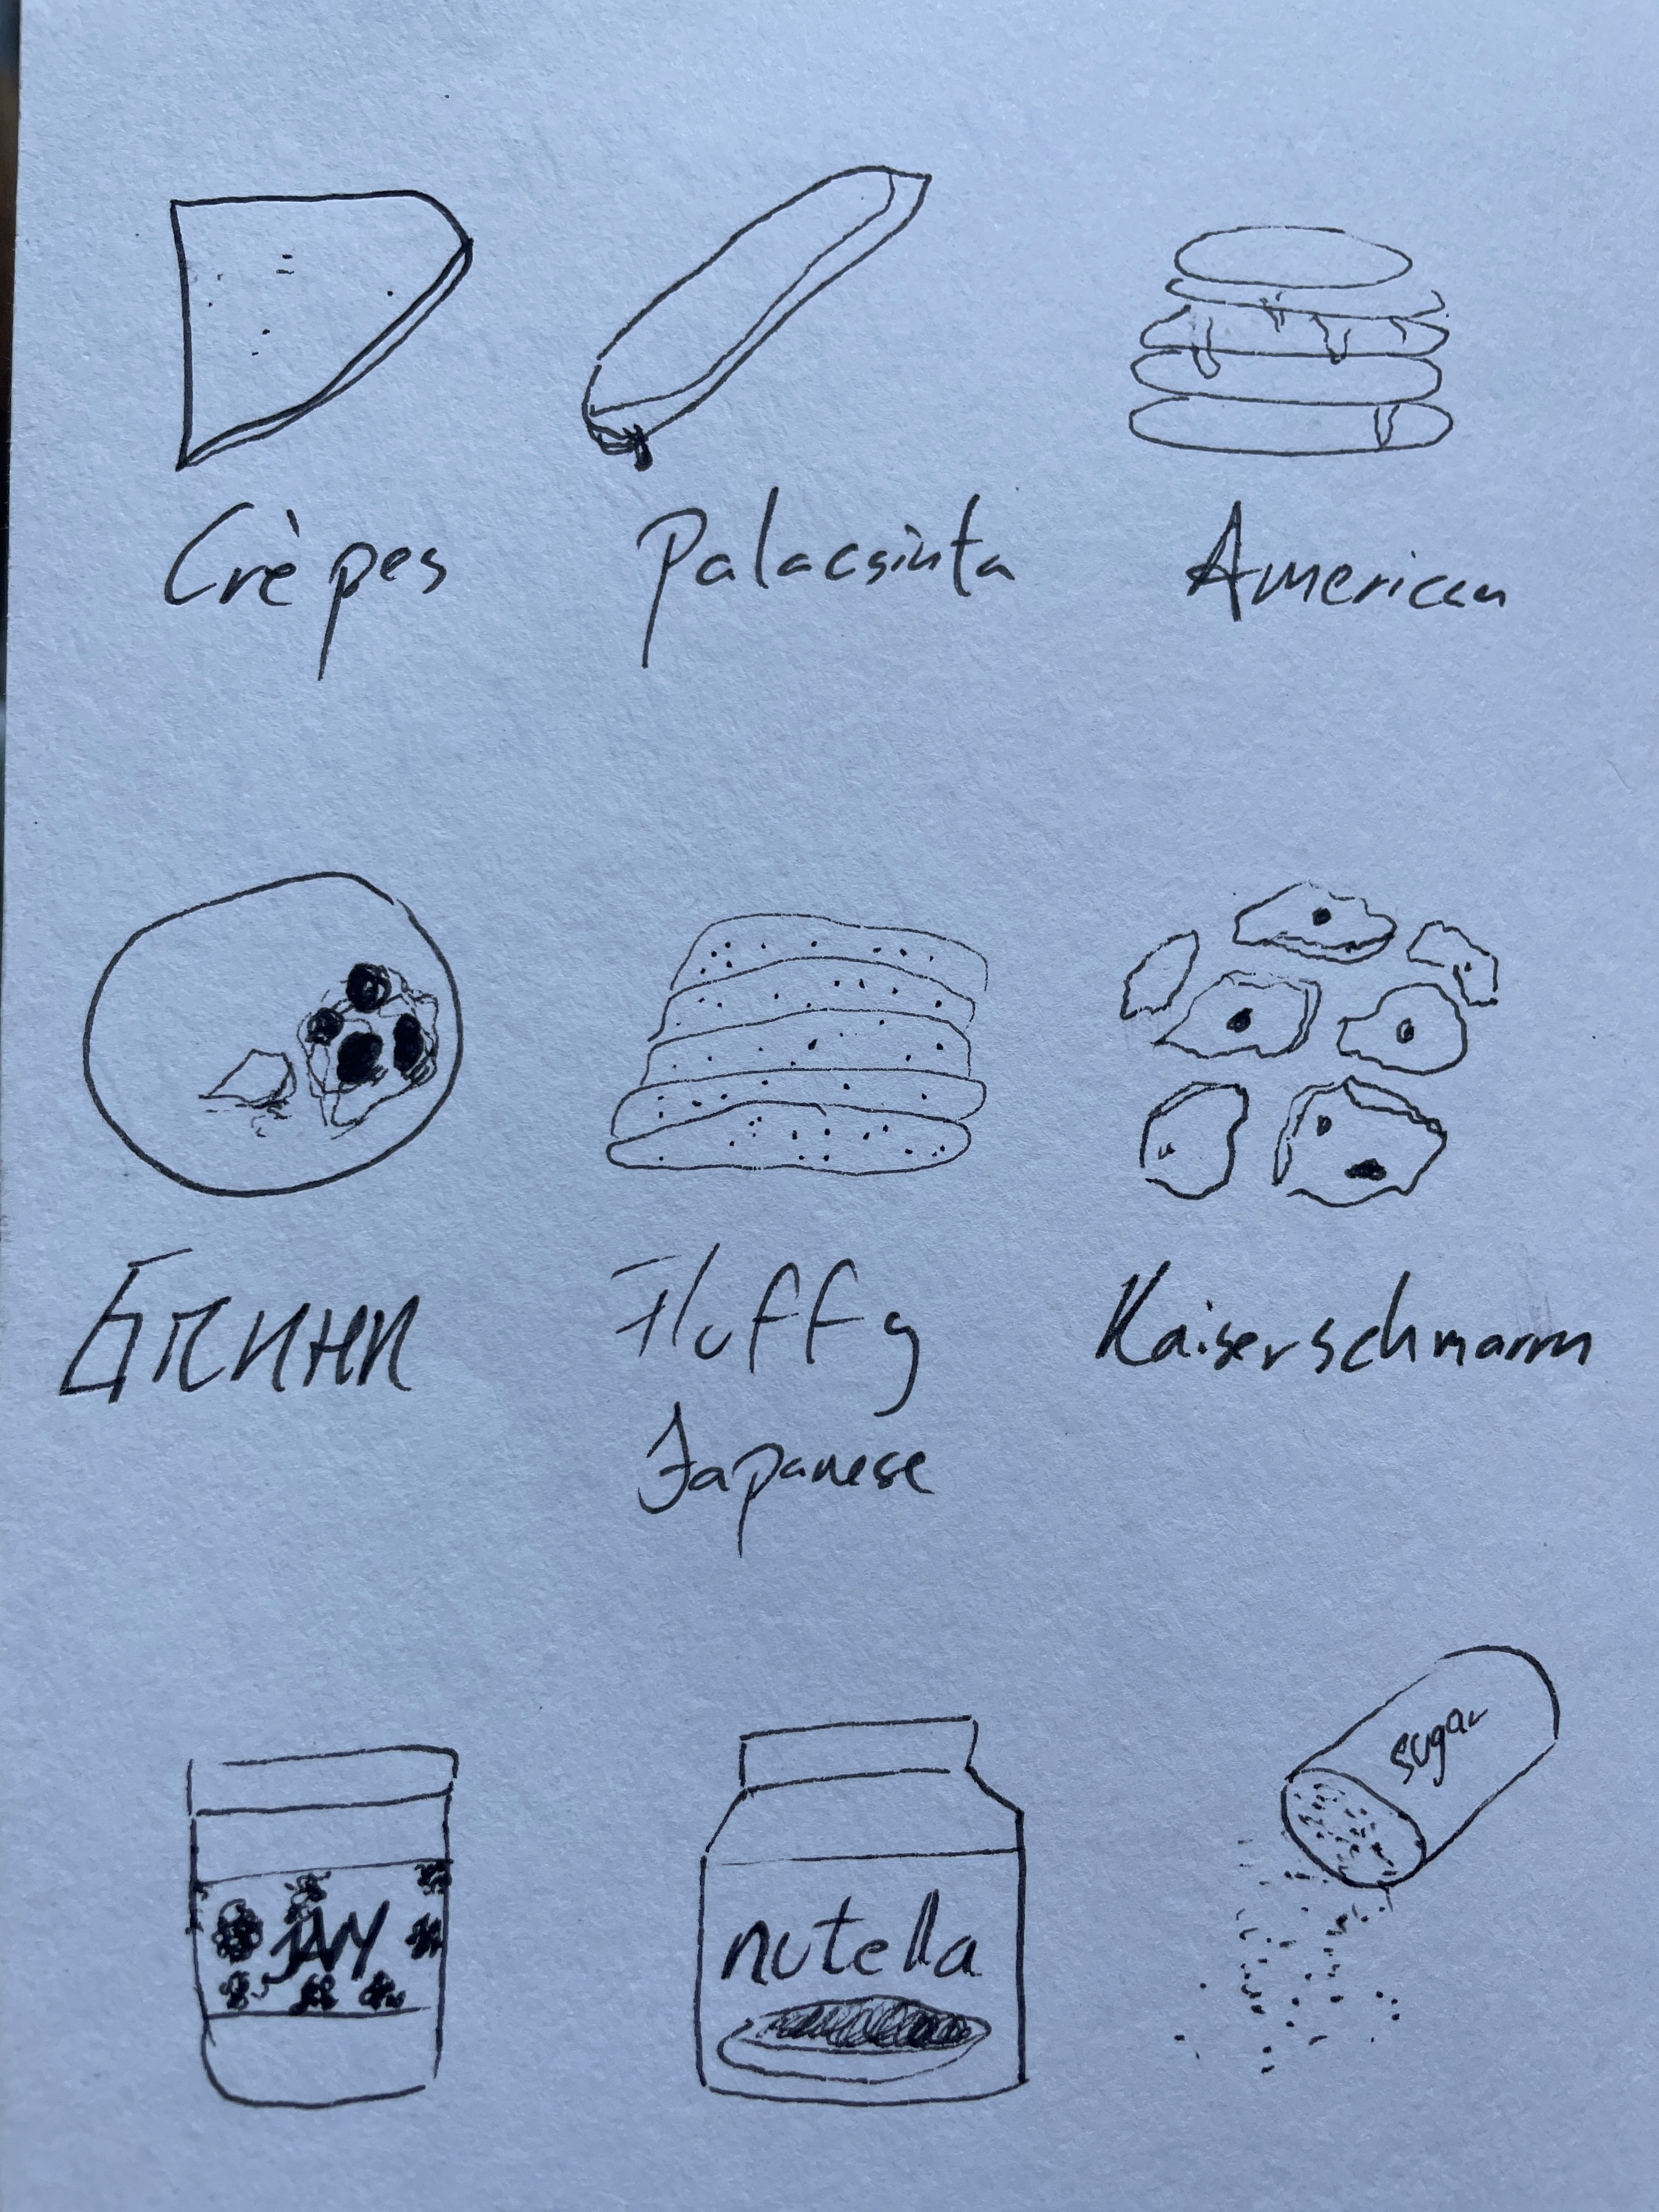 Crèpes
Palacsinta
American
Блини
Fluffy
Japanese
Kaiserschmarrn
JAM
nutella
sugar